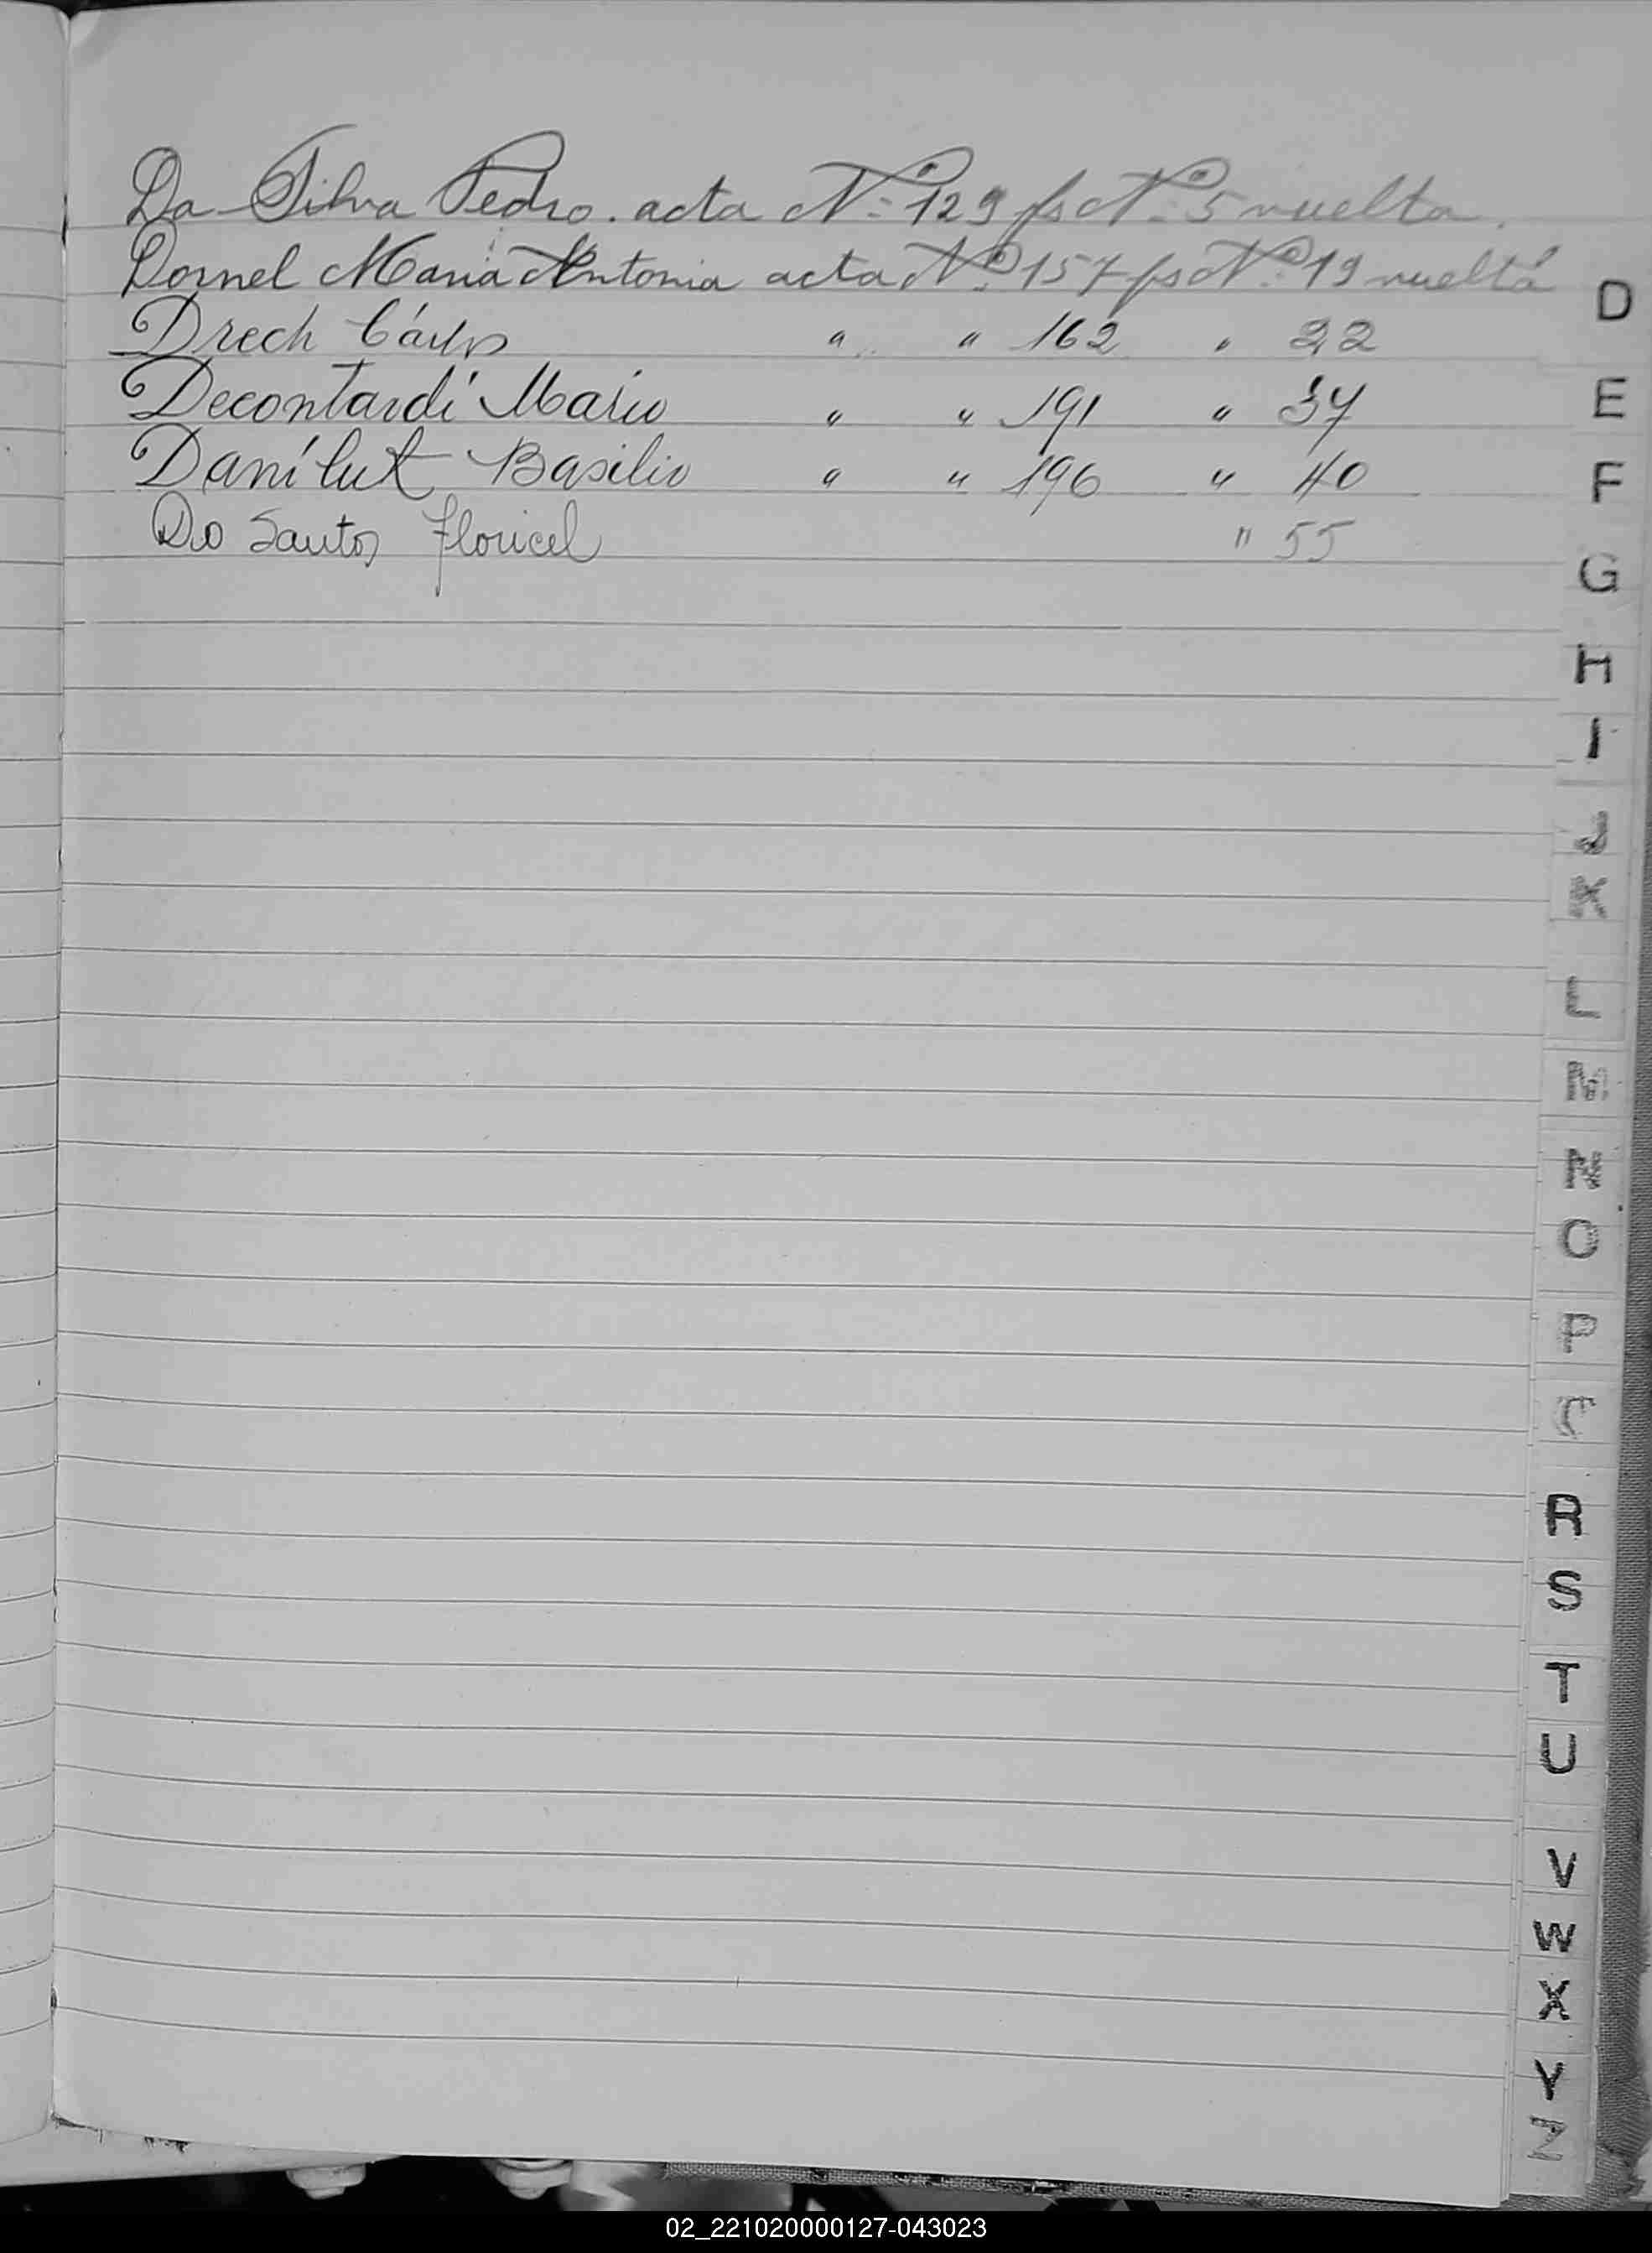 Da Silva Pedro. acta Nº 129 fs Nº 5 vuelta.
Dornel Maria Antonia acta Nº 157 fs Nº 19 vuelta
Drech Cárlos " " 162 " 22
Decontardi Mario " " 191 " 37
Danilut Basilio " " 196 " 40
Do Santos Floricel " 55
D
E
F
G
H
I
J
K
L
M
N
O
P
R
S
T
U
V
W
X
Y
Z
02_221020000127-043023